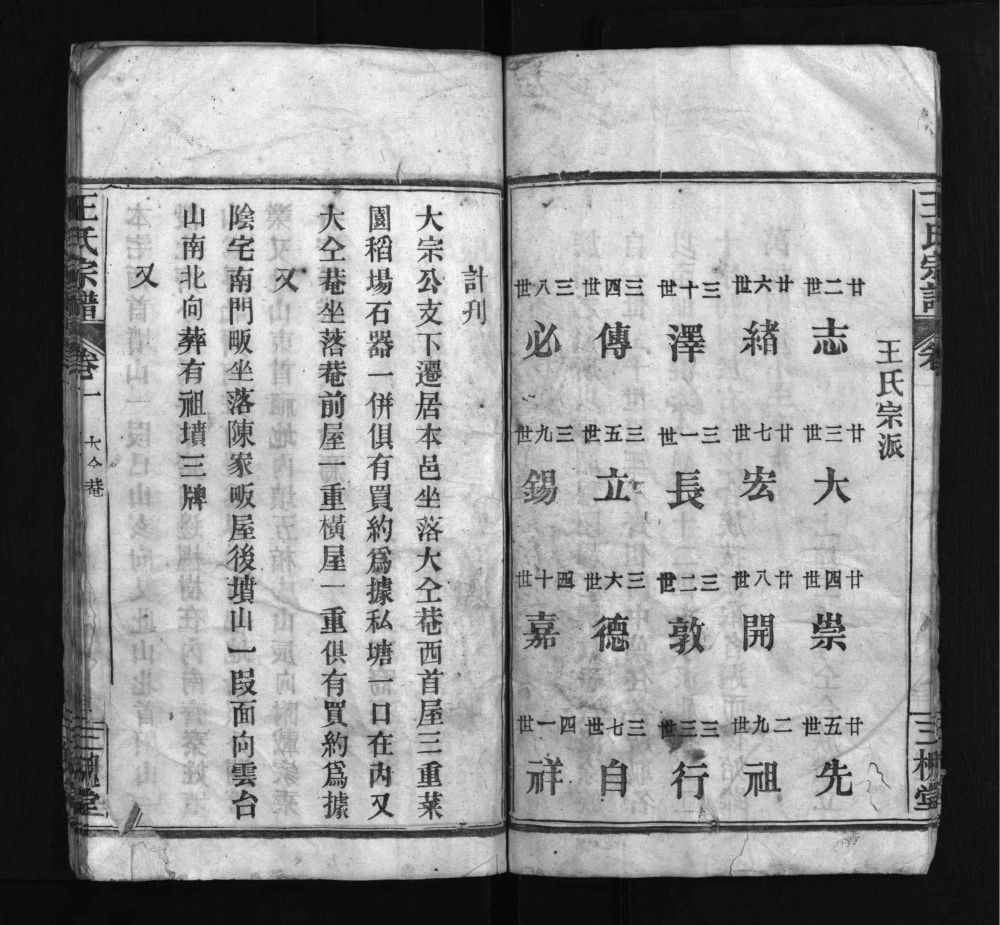 王氏宗譜
卷
三槐堂
王氏宗派
廿二世
志
廿三世
大
廿四世
崇
廿五世
先
廿六世
緒
廿七世
宏
廿八世
開
二九世
祖
三十世
澤
三一世
長
三二世
敦
三三世
行
三四世
傳
三五世
立
三六世
德
三七世
自
三八世
必
三九世
錫
四十世
嘉
四一世
祥
計刋
大宗公支下遷居本邑坐落大仝巷西首屋三重菜
園稻塲石器一併俱有買約爲據私塘一口在內又
大仝菴坐落菴前屋一重橫屋一重俱有買約爲據
又
陰宅南門畈坐落陳家畈屋後墳山一叚面向雲台
山南北向葬有祖墳三牌
又
王氏宗譜
卷一
大仝菴
三槐堂